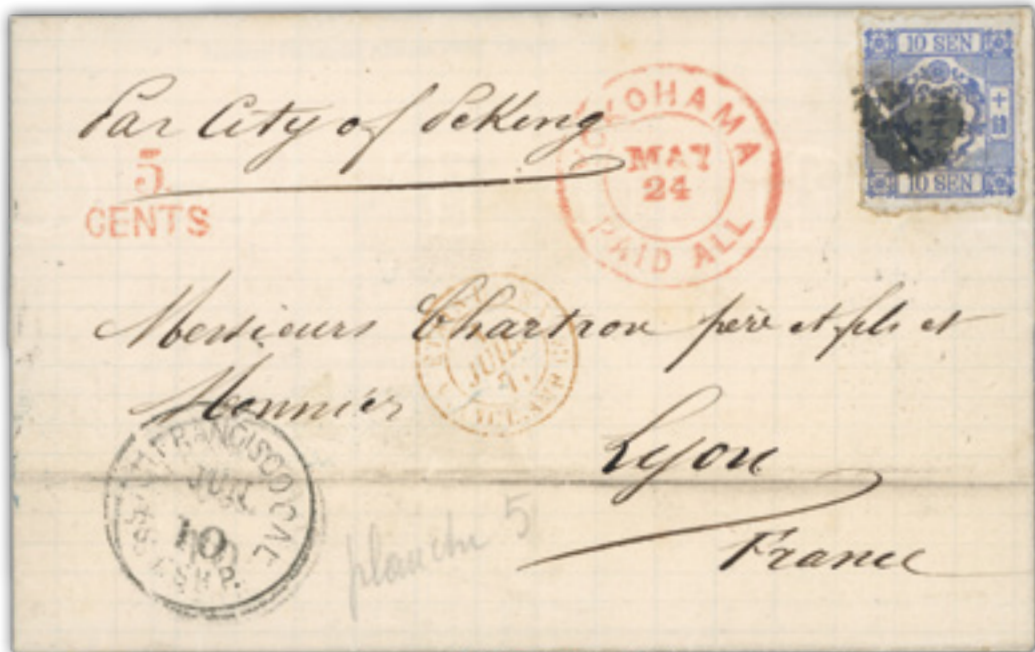 10 SEN
十錢
10 SEN
Par City of Peking
5
CENTS
YOKOHAMA
MAY
24
PAID ALL
Messieurs Chartron père et fils et
Monnier
Lyon
France
JUIL
7.
SAN FRANCISCO CAL
JUL
10
planche 5